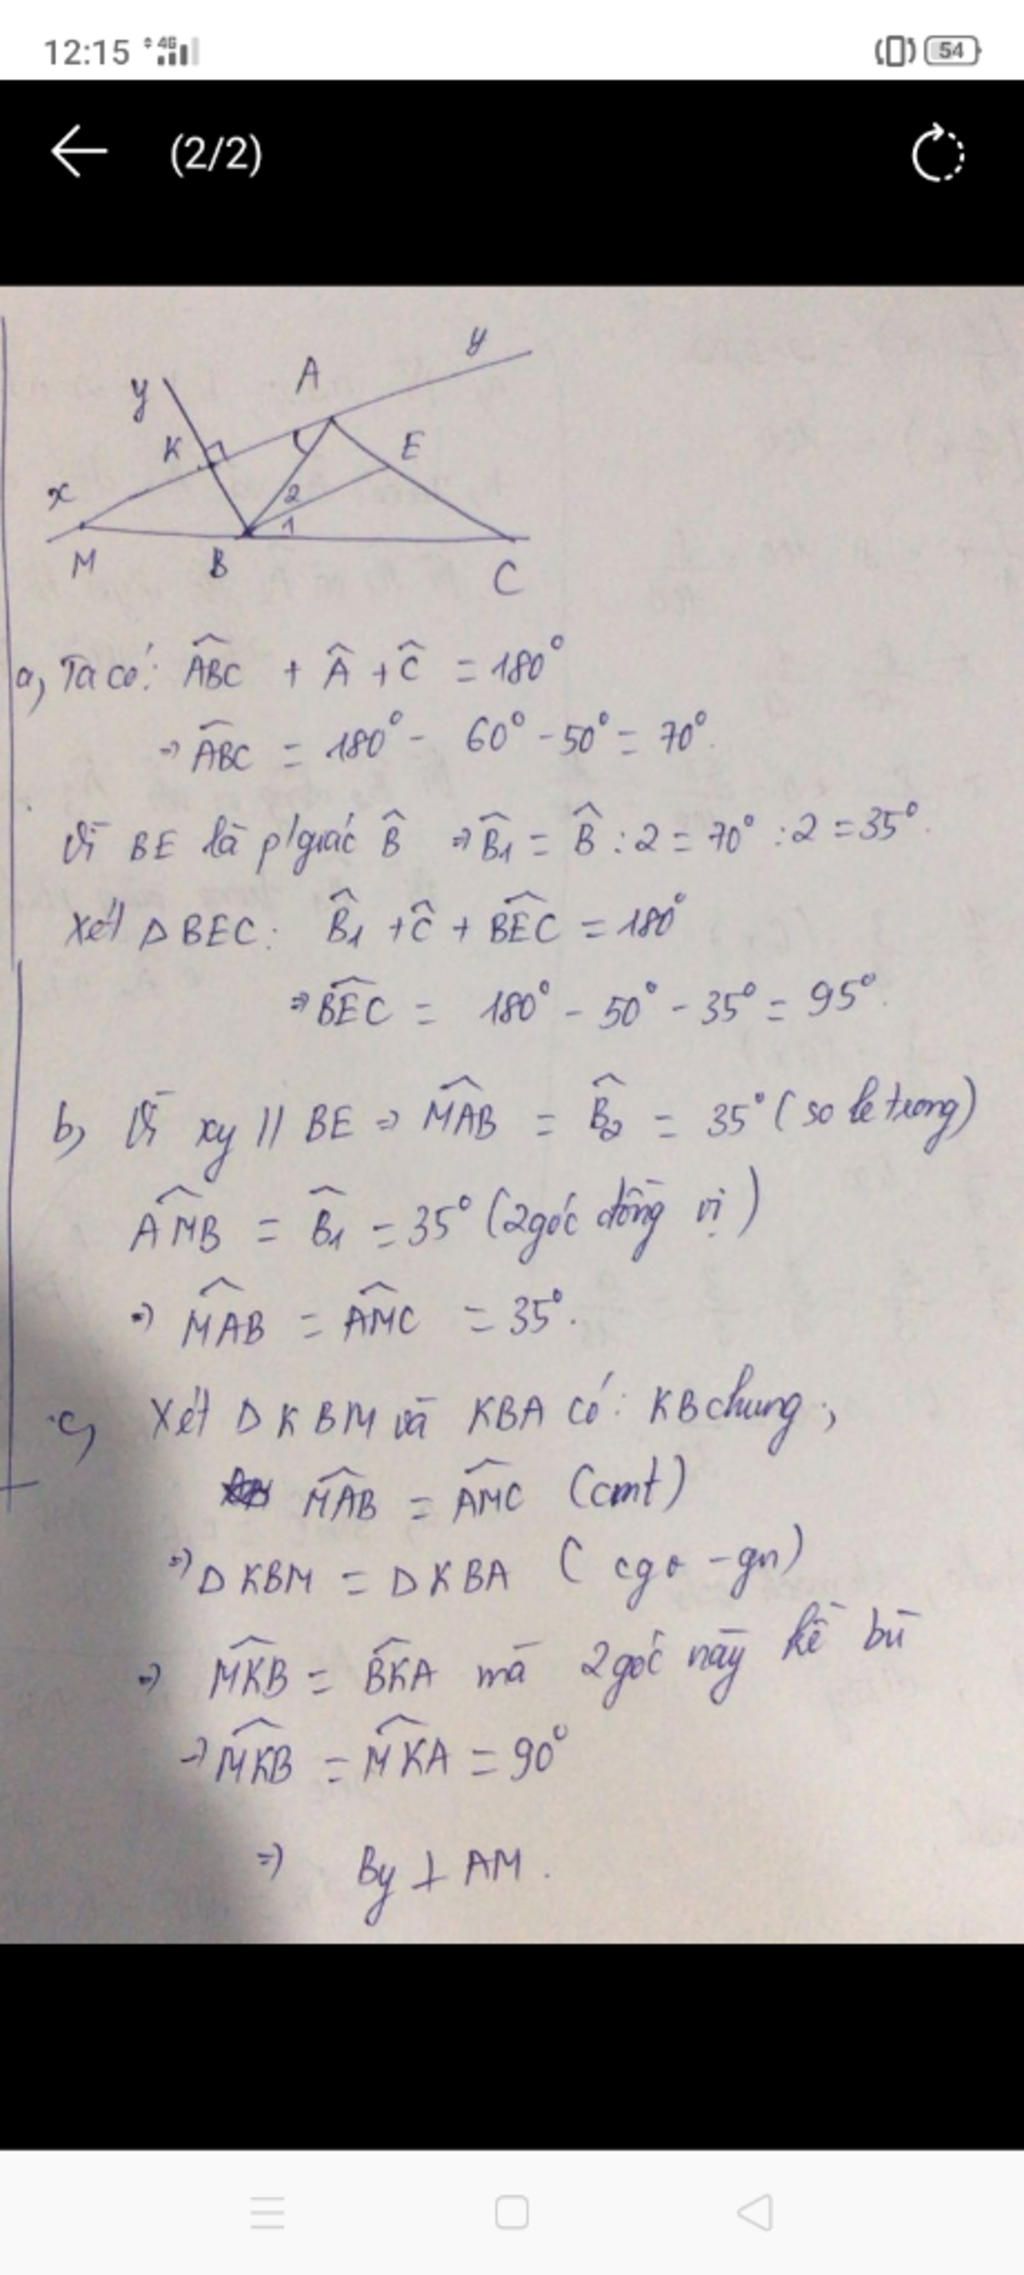 12:15 4G 54
(2/2)
y A y
K E
x 2
1
M B C
a, Ta có: ABC + Â + Ĉ = 180°
→ ABC = 180° - 60° - 50° = 70°.
Vì BE là p/giác B̂ ⇒ B̂1 = B̂ : 2 = 70° : 2 = 35°.
Xét Δ BEC: B̂1 + Ĉ + BEC = 180°
⇒ BEC = 180° - 50° - 35° = 95°.
b, Vì xy // BE ⇒ MAB = B̂2 = 35° (so le trong)
AMB = B̂1 = 35° (2 góc đồng vị)
⇒ MAB = AMC = 35°.
c, Xét Δ KBM và KBA có: KB chung,
MAB = AMC (cmt)
⇒ Δ KBM = Δ KBA ( cgv - gn)
⇒ MKB = BKA mà 2 góc này kề bù
→ MKB = MKA = 90°
⇒ By ⊥ AM.